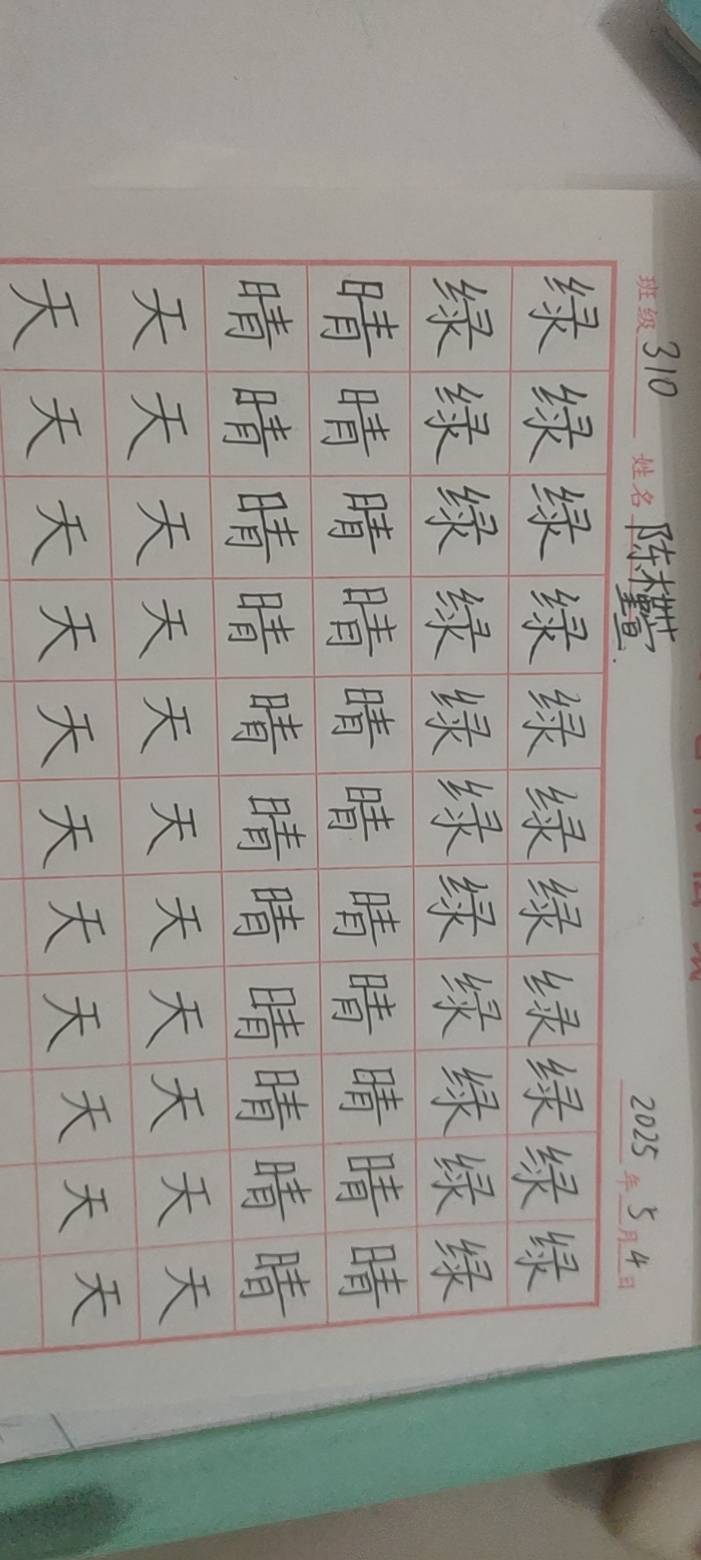 班级 310 姓名 陈 2025 年 5 月 4 日
绿 绿 绿 绿 绿 绿 绿 绿 绿 绿 绿
绿 绿 绿 绿 绿 绿 绿 绿 绿 绿 绿
晴 晴 晴 晴 晴 晴 晴 晴 晴 晴 晴
晴 晴 晴 晴 晴 晴 晴 晴 晴 晴 晴
天 天 天 天 天 天 天 天 天 天 天
天 天 天 天 天 天 天 天 天 天 天